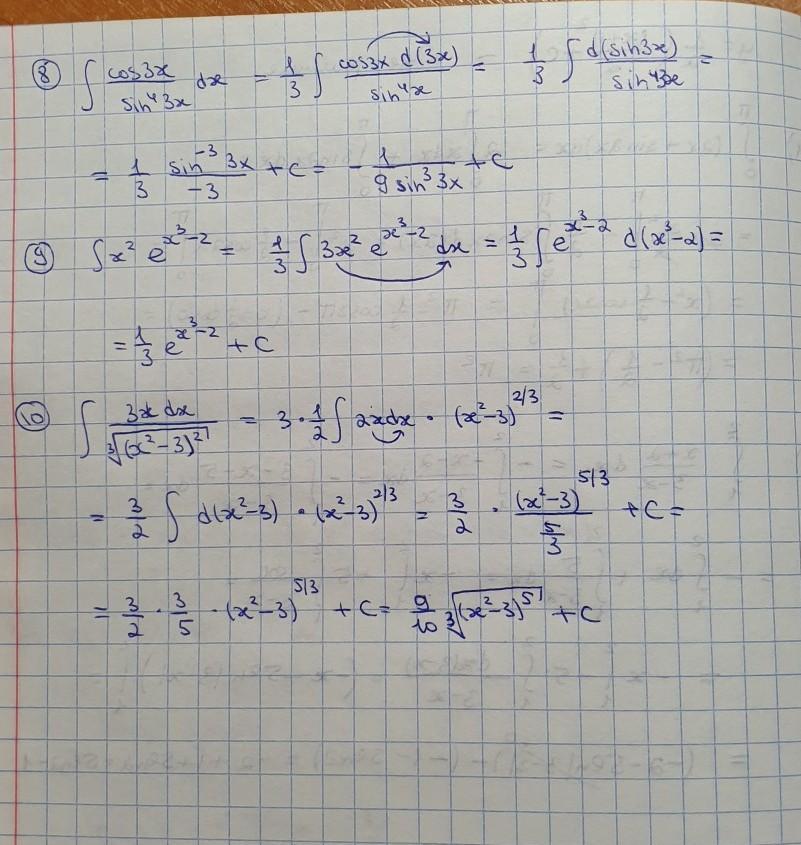 ⑧ ∫ cos3x / sin⁴3x dx = 1/3 ∫ cos3x d(3x) / sin⁴x = 1/3 ∫ d(sin3x) / sin⁴3x =
= 1/3 sin⁻³3x / -3 + C = - 1 / 9 sin³3x + C
⑨ ∫x² e^(x³-2) = 1/3 ∫ 3x² e^(x³-2) dx = 1/3 ∫ e^(x³-2) d(x³-2) =
= 1/3 e^(x³-2) + C
⑩ ∫ 3x dx / ∛((x²-3)²) = 3 · 1/2 ∫ 2x dx · (x²-3)^(2/3) =
= 3/2 ∫ d(x²-3) · (x²-3)^(2/3) = 3/2 · (x²-3)^(5/3) / (5/3) + C =
= 3/2 · 3/5 · (x²-3)^(5/3) + C = 9/10 ∛((x²-3)⁵) + C